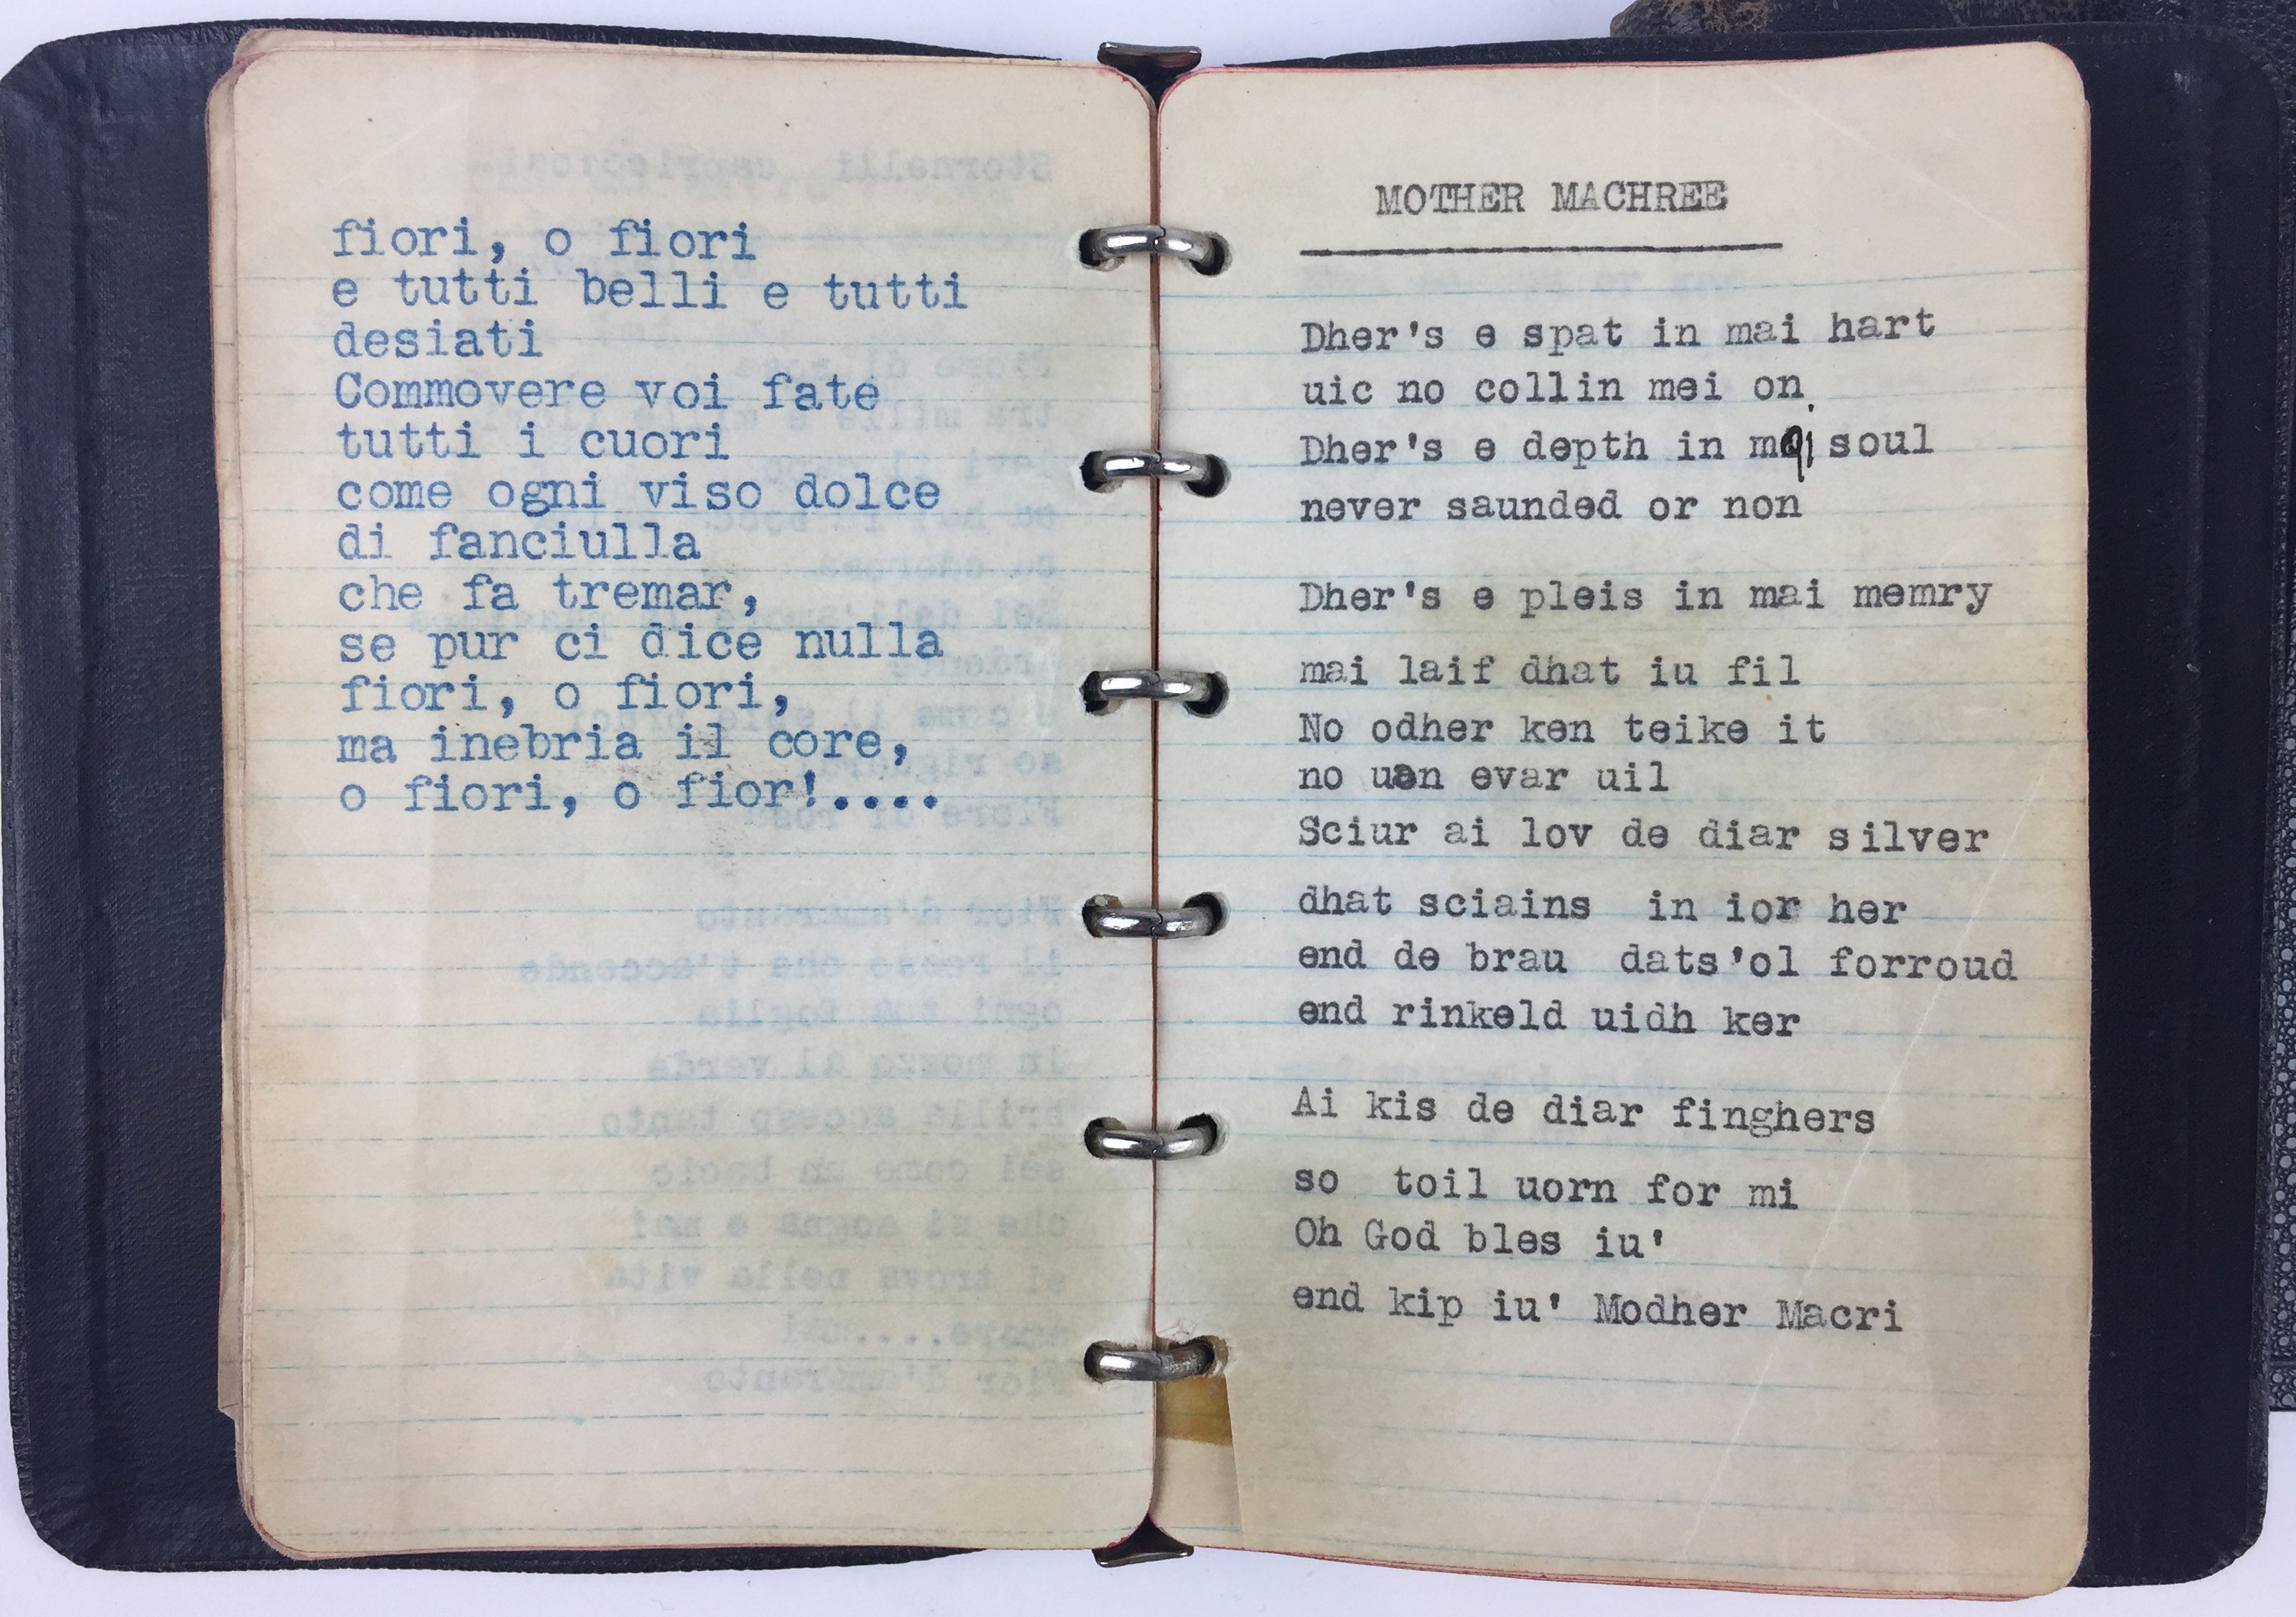 fiori, o fiori
e tutti belli e tutti
desiati
Commovere voi fate
tutti i cuori
come ogni viso dolce
di fanciulla
che fa tremar,
se pur ci dice nulla
fiori, o fiori,
ma inebria il core,
o fiori, o fior!....
MOTHER MACHREE
Dher's e spat in mai hart
uic no collin mei on
Dher's e depth in mai soul
never saunded or non
Dher's e pleis in mai memry
mai laif dhat iu fil
No odher ken teike it
no uan evar uil
Sciur ai lov de diar silver
dhat sciains in ior her
end de brau dats'ol forroud
end rinkeld uidh ker
Ai kis de diar finghers
so toil uorn for mi
Oh God bles iu'
end kip iu' Modher Macri